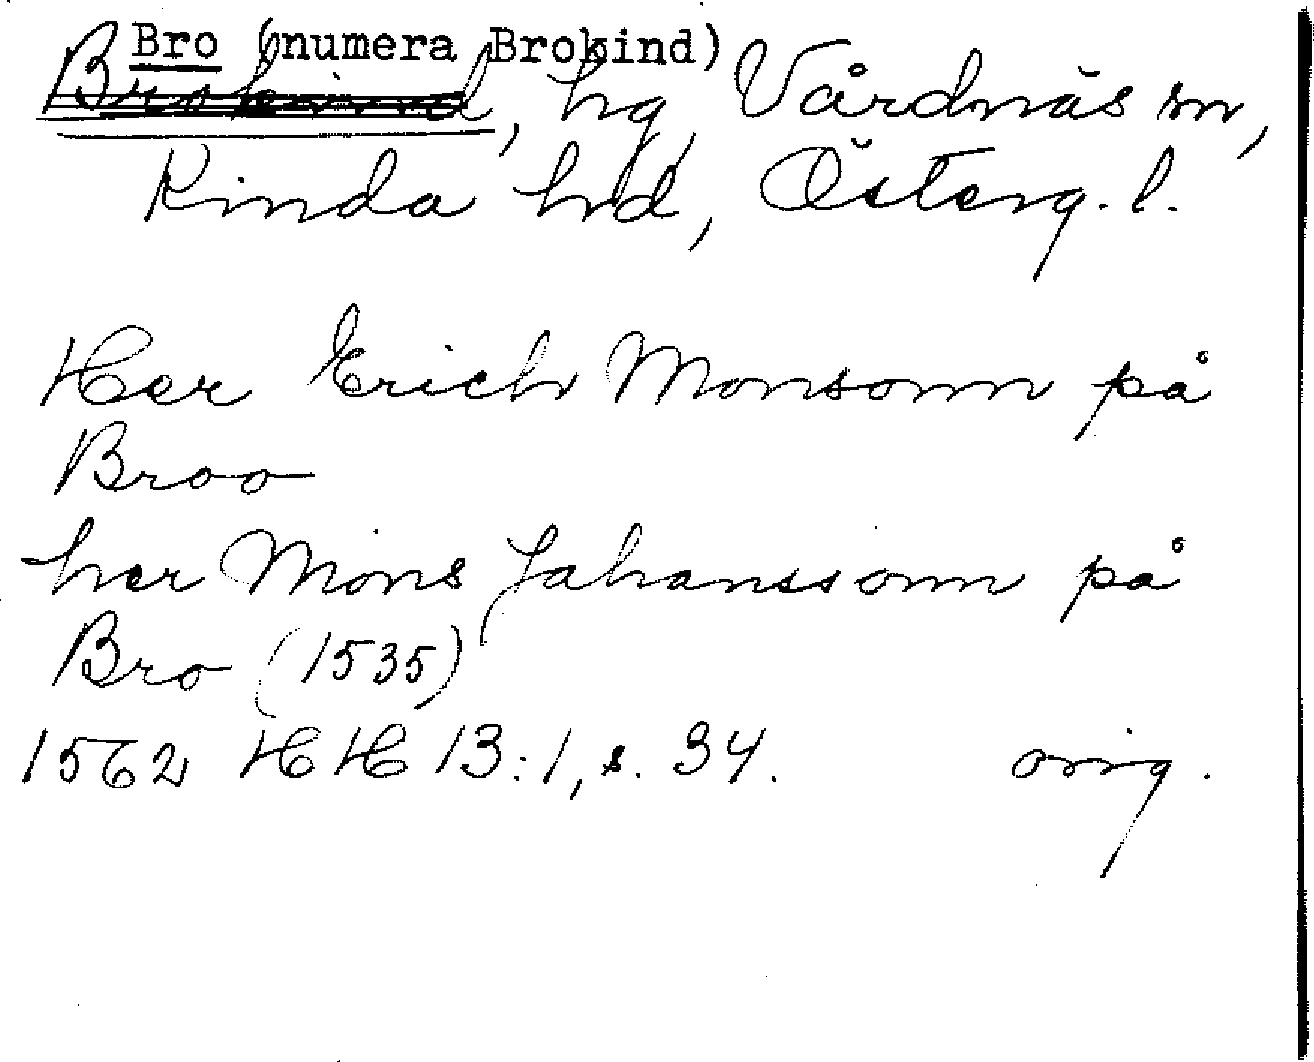 Bro (numera Brokind)
Brokind, hg, Vårdnäs sn,
Kinda hd, Österg. l.
Her Erich Monsonn på
Broo
her Mons Jahanssonn på
Bro (1535)
1562 HH 13:1, s. 34. orig.